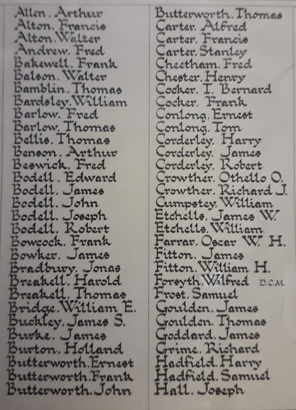 Allen. Arthur
Alton. Francis
Alton. Walter
Andrew. Fred
Bakewell. Frank
Balson. Walter
Bamblin. Thomas
Bardsley. William
Barlow. Fred
Barlow. Thomas
Bellis. Thomas
Benson. Arthur
Beswick. Fred
Bodell. Edward
Bodell. James
Bodell. John
Bodell. Joseph
Bodell. Robert
Bowcock. Frank
Bowker. James
Bradbury. Jonas
Breakell. Harold
Breakell. Thomas
Bridge. William E.
Buckley. James S.
Burke. James
Burton. Holland
Butterworth. Ernest
Butterworth. Frank
Butterworth. John
Butterworth. Thomas
Carter. Alfred
Carter. Francis
Carter. Stanley
Cheetham. Fred
Chester. Henry
Cocker. T. Bernard
Cocker. Frank
Conlong. Ernest
Conlong. Tom
Corderley. Harry
Corderley. James
Corderley. Robert
Crowther. Othello O.
Crowther. Richard J.
Cumpstey. William
Etchells. James W.
Etchells. William
Farrar. Oscar W. H.
Fitton. James
Fitton. William H.
Forsyth. Wilfred D.C.M.
Frost. Samuel
Goulden. James
Goulden. Thomas
Goddard. James
Grime. Richard
Hadfield. Harry
Hadfield. Samuel
Hall. Joseph